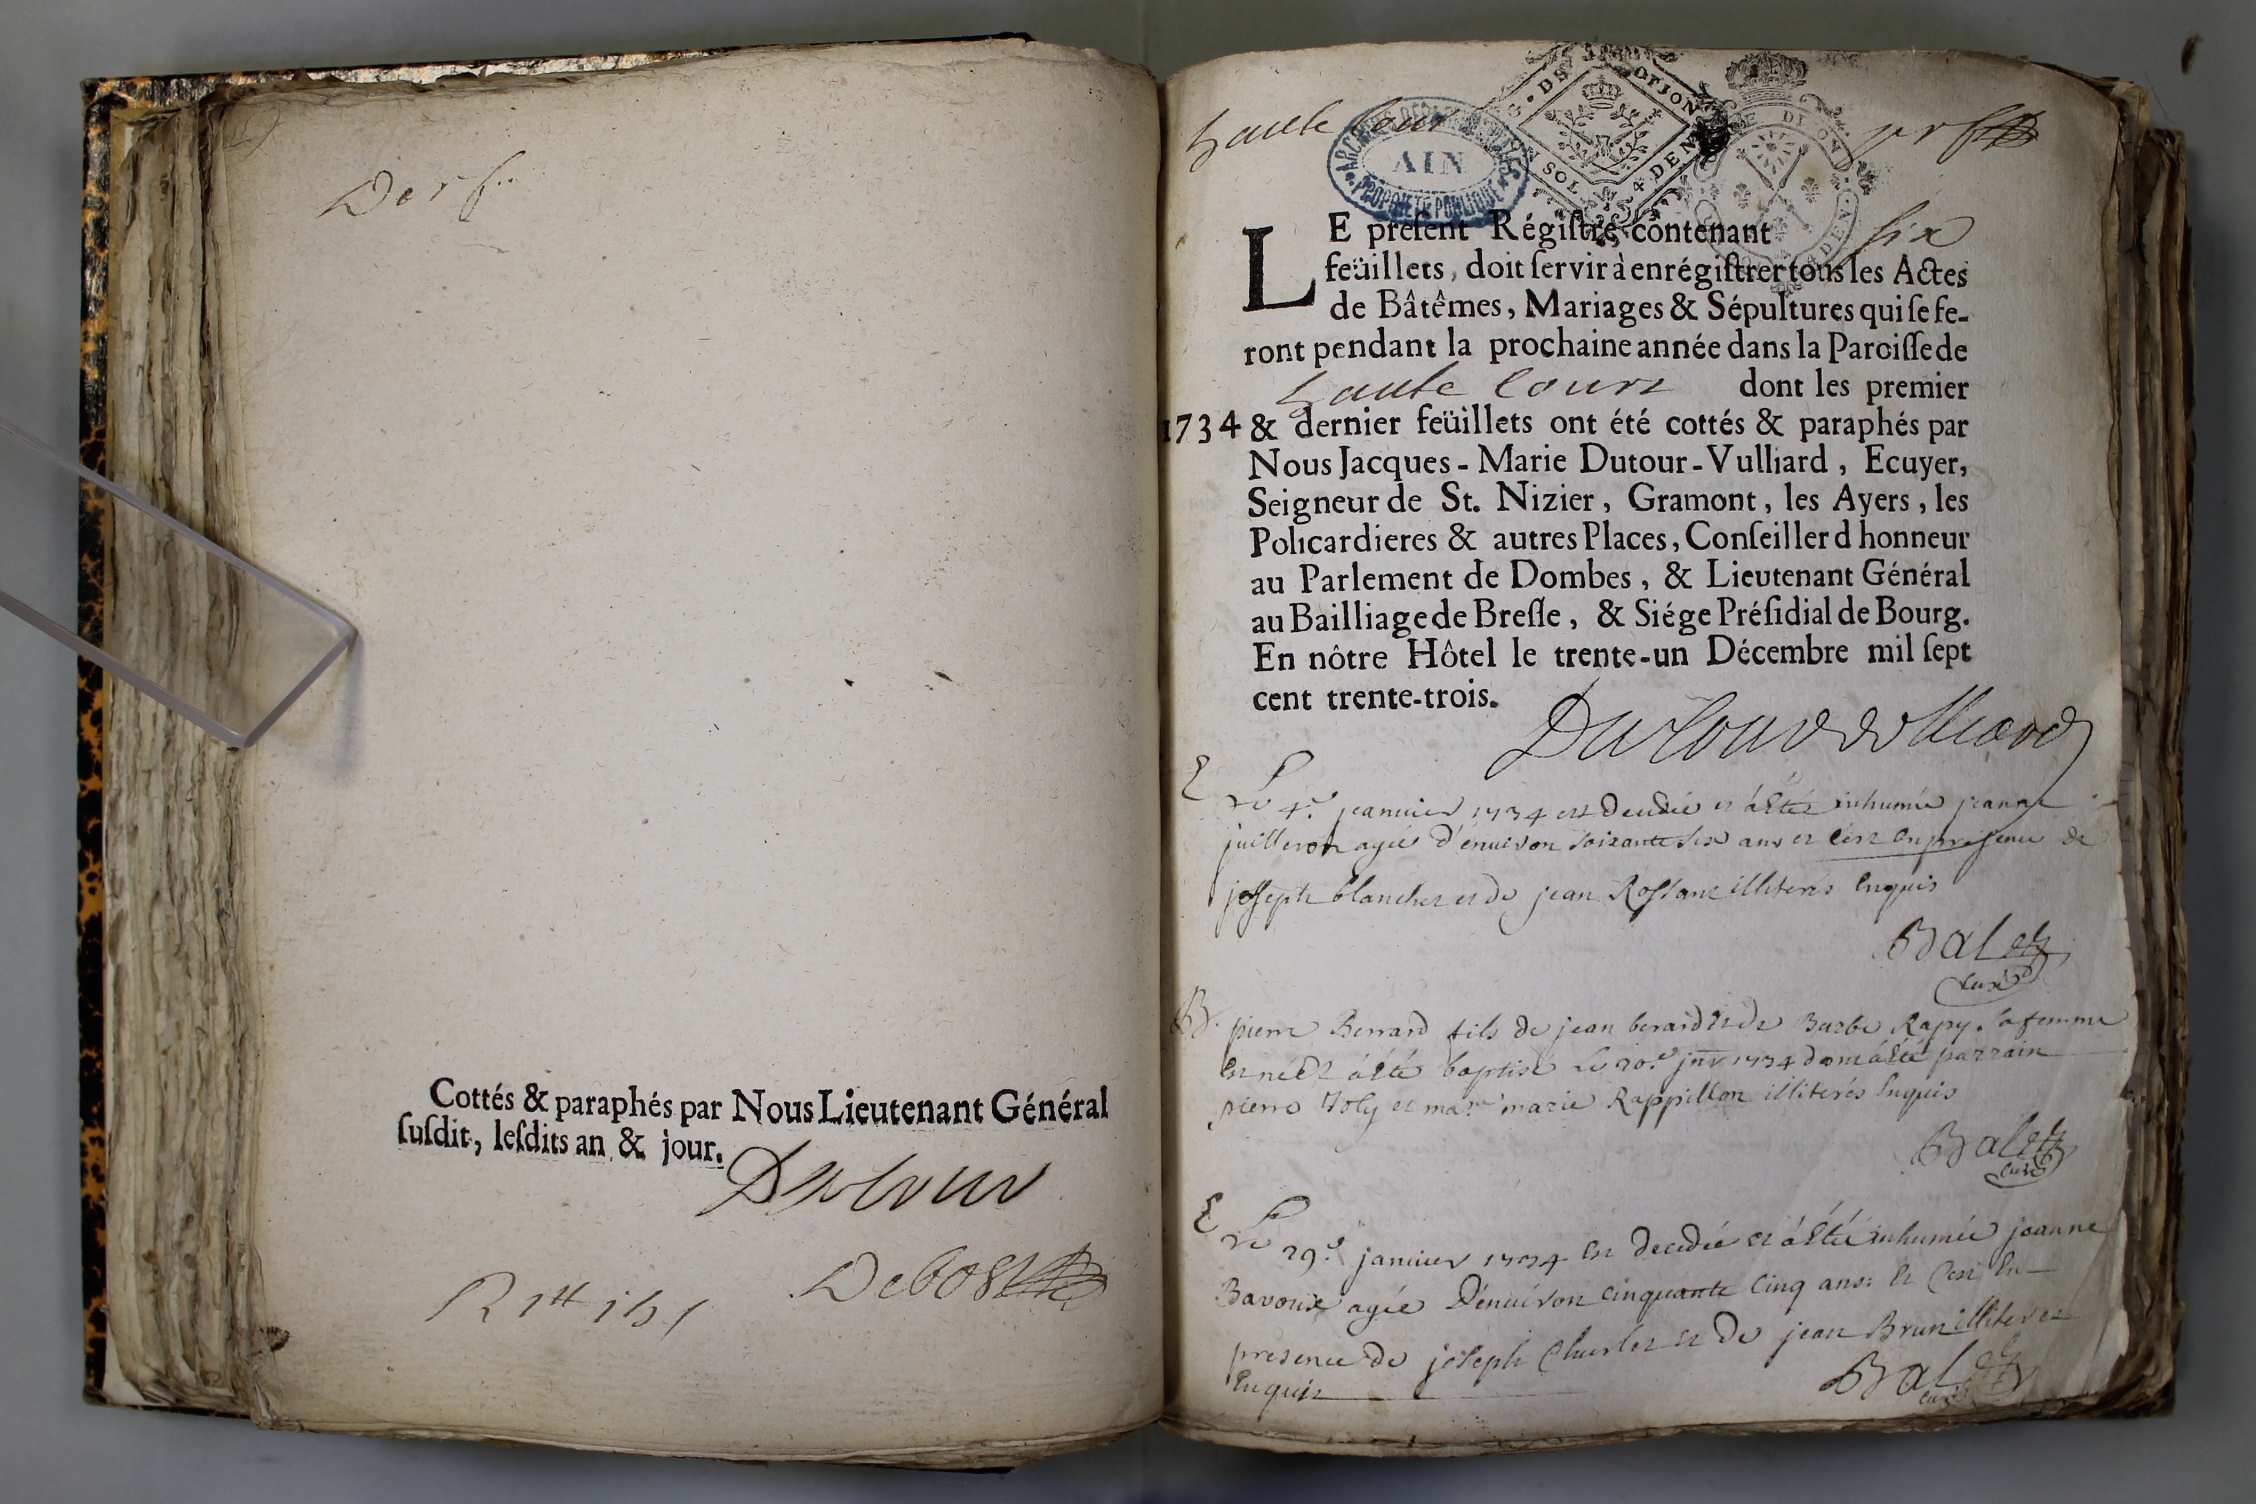 Der f..
Cottés & paraphés par Nous Lieutenant Général
ſuſdit, leſdits an & jour.
Dutour
Debost
haute Cour
ARCHIVES DEPARTEMENTALES
AIN
PROPRIETE PUBLIQUE
G. DS DIJON
SOL 4 DEN
DIJON
DEN
pr f
LE preſent Régiſtre contenant six
feüillets, doit ſervir à enrégiſtrer tous les Actes
de Bâtêmes, Mariages & Sépultures qui ſe fe-
ront pendant la prochaine année dans la Paroiſſe de
haute Cour dont les premier
1734 & dernier feüillets ont été cottés & paraphés par
Nous Jacques-Marie Dutour-Vulliard, Ecuyer,
Seigneur de St. Nizier, Gramont, les Ayers, les
Policardieres & autres Places, Conſeiller d honneur
au Parlement de Dombes, & Lieutenant Général
au Bailliage de Breſſe, & Siége Préſidial de Bourg.
En nôtre Hôtel le trente-un Décembre mil ſept
cent trente-trois.
Dutour Vulliard
E Le 4.e jeanvier 1734 est decedée et a esté inhumée jeanne
juilleron agée d'enuiron soixante six ans et c'est en presence de
joseph blanchet et de jean Rossant illiterés enquis
Balet
curé
B. pierre Berrard fils de jean berard et de Barbe Rapy sa femme
est né et a esté baptisé le 20.e jnv 1734 dont a esté parrain
pierre Joly et mar.ne marie Rappillon illiterés enquis
Balet
curé
E Le 29.e janvier 1734 est decedée et a esté inhumée jeanne
Bavoux agée d'enuiron cinquante cinq ans: et c'est en
presence de joseph Charles et de jean Brun illiterez
enquis
Balet
curé